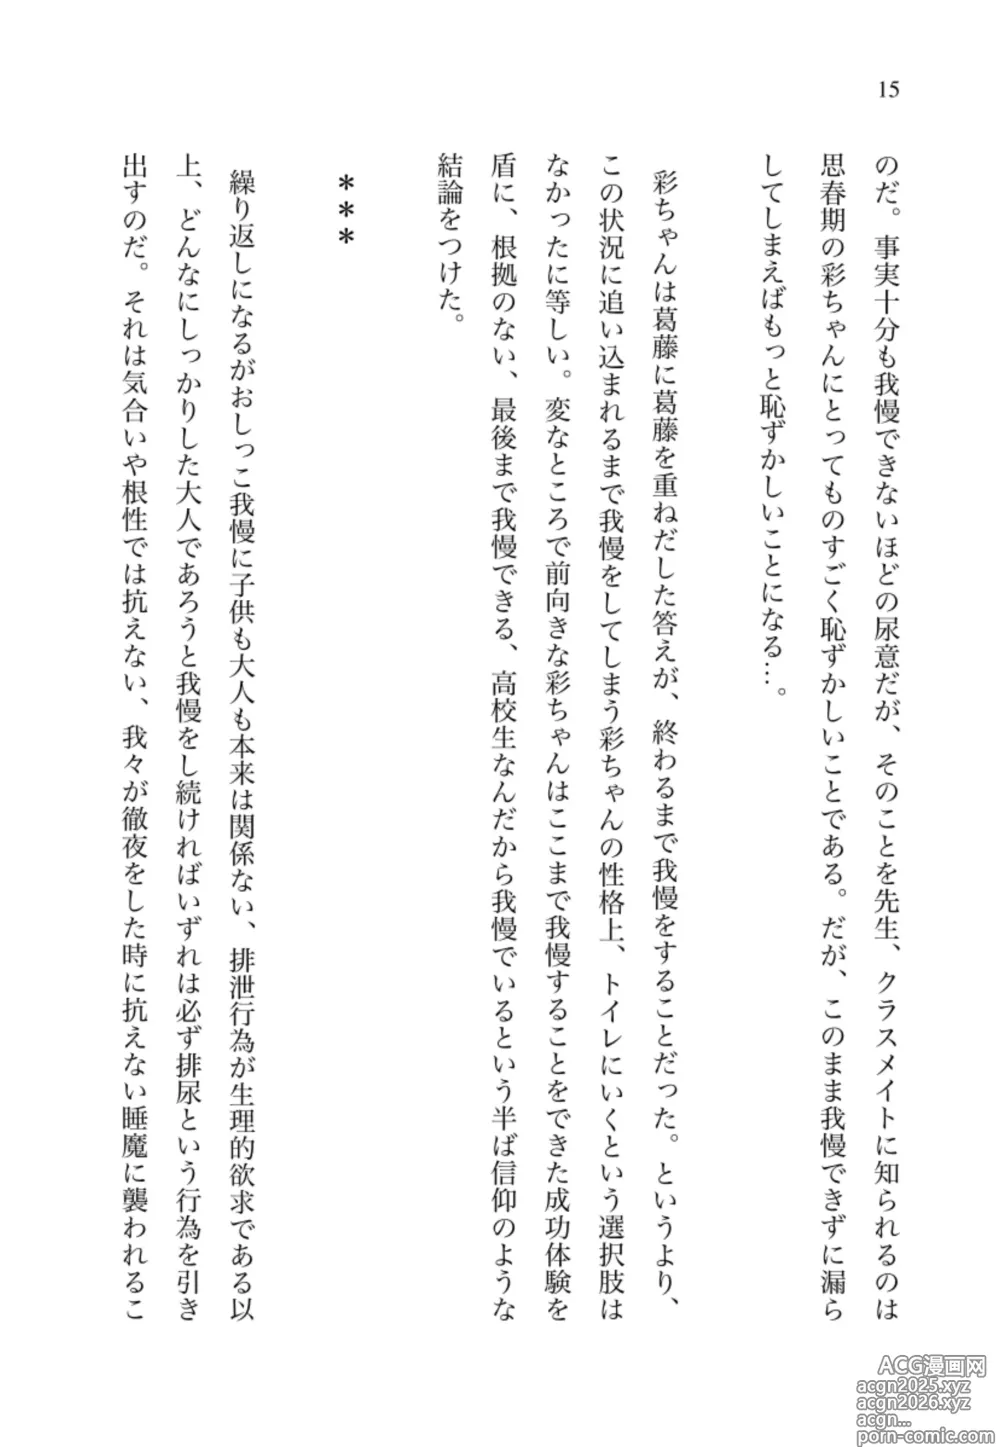 15
のだ。事実十分も我慢できないほどの尿意だが、そのことを先生、クラスメイトに知られるのは
思春期の彩ちゃんにとってものすごく恥ずかしいことである。だが、このまま我慢できずに漏ら
してしまえばもっと恥ずかしいことになる…。
彩ちゃんは葛藤に葛藤を重ねだした答えが、終わるまで我慢をすることだった。というより、
この状況に追い込まれるまで我慢をしてしまう彩ちゃんの性格上、トイレにいくという選択肢は
なかったに等しい。変なところで前向きな彩ちゃんはここまで我慢することをできた成功体験を
盾に、根拠のない、最後まで我慢できる、高校生なんだから我慢でいるという半ば信仰のような
結論をつけた。
＊＊＊
繰り返しになるがおしっこ我慢に子供も大人も本来は関係ない、排泄行為が生理的欲求である以
上、どんなにしっかりした大人であろうと我慢をし続ければいずれは必ず排尿という行為を引き
出すのだ。それは気合いや根性では抗えない、我々が徹夜をした時に抗えない睡魔に襲われるこ
ACG漫画网
acgn2025.xyz
acgn2026.xyz
acgn...
porn-comic.com